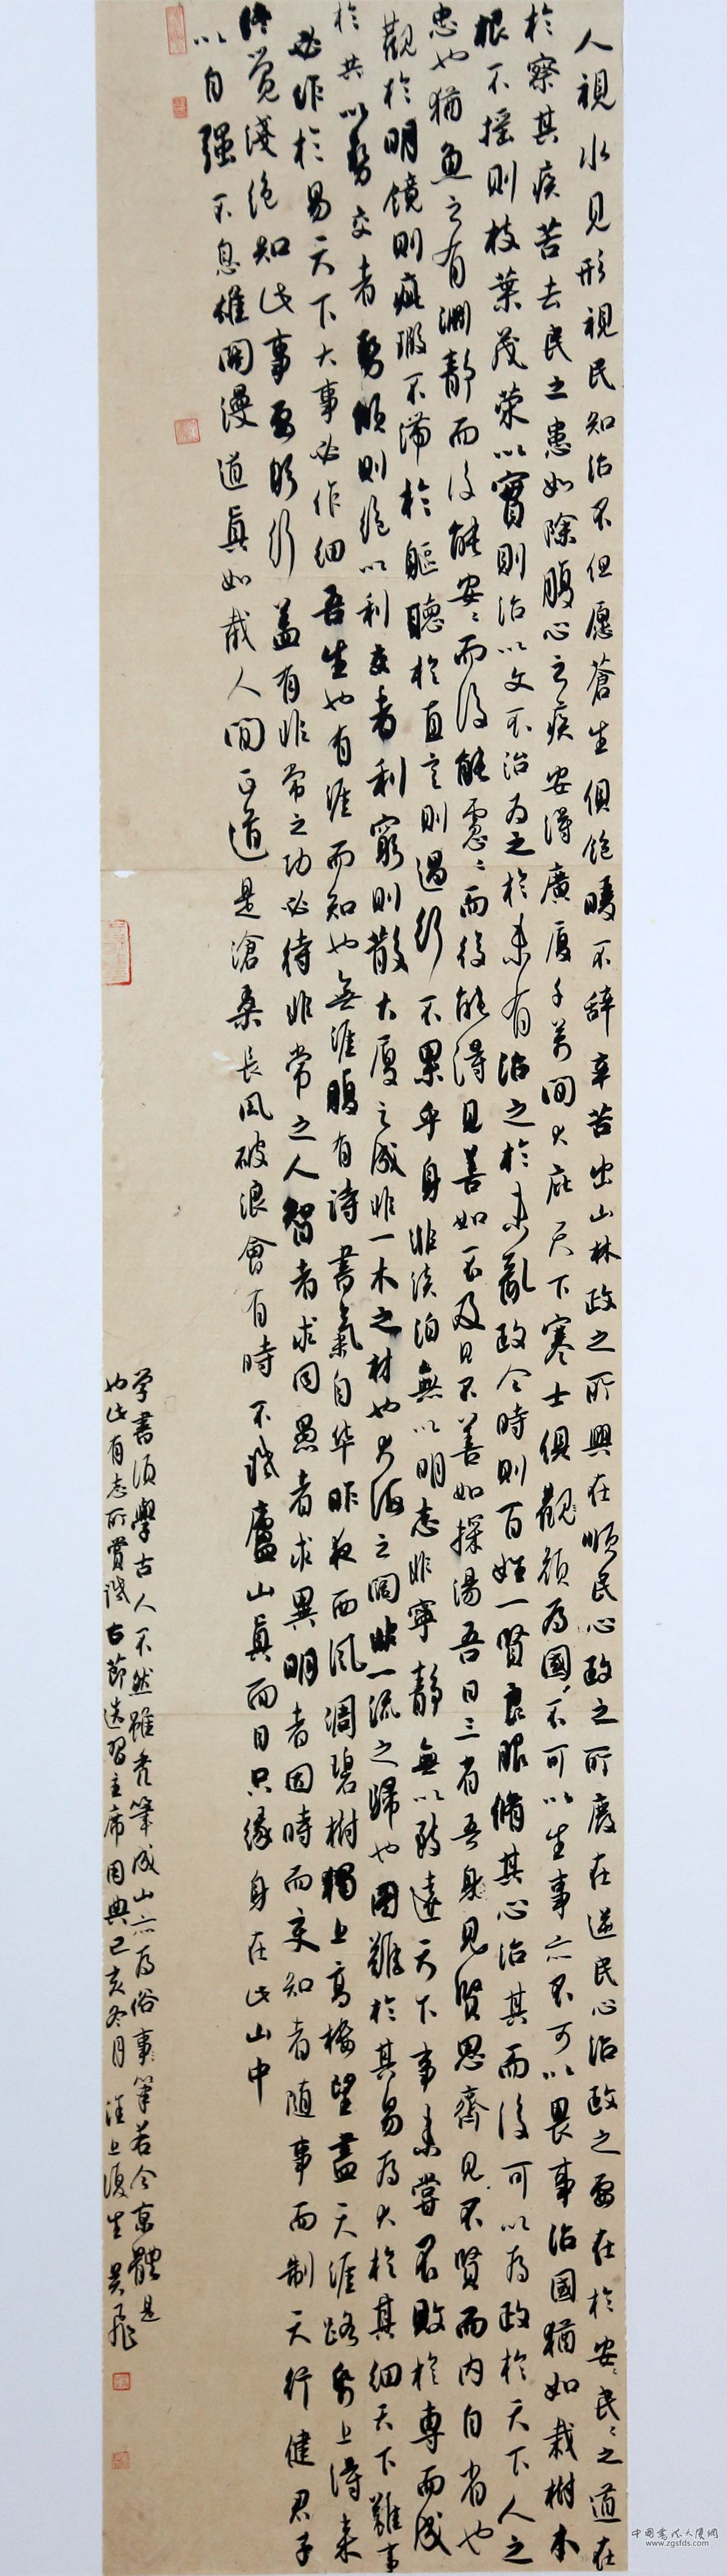 人視水見形視民知治不但愿蒼生俱飽暖不辞辛苦出山林政之所興在順民心政之所廢在逆民心治政之要在於安民民之道在
於察其疾苦去民之患如除腹心之疾安得廣厦千萬間大庇天下寒士俱歡顔为國不可以生事亦不可以畏事治國猶如栽樹本
根不摇則枝葉茂荣以實則治以文不治为之於未有治之於未亂政令時則百姓一賢良服脩其心治其而後可以为政於天下人之
忠也猶魚之有渊静而後能安安而後能慮慮而後能得見善如不及見不善如探湯吾日三省吾身見賢思齊見不賢而内自省也
觀於明鏡則疵瑕不滯於軀聽於直言則過行不累乎身非淡泊無以明志非寧静無以致遠天下事未嘗不敗於專而成
於共以勢交者勢傾則絶以利交者利窮則散大厦之成非一木之材也大海之闊非一流之歸也圖難於其易为大於其细天下難事
必作於易天下大事必作细吾生也有涯而知也無涯腹有詩書氣自华昨夜西风凋碧樹獨上高樓望盡天涯路紙上得来
终觉淺绝知此事要躬行盖有非常之功必待非常之人智者求同愚者求異明者因時而变知者随事而制天行健君子
以自强不息雄關漫道真如鐵人間正道是滄桑長风破浪會有時不識廬山真面目只緣身在此山中
学書須學古人不然雖秃筆成山亦为俗事筆若今京體是
也此有志所賞識古節选習主席用典己亥冬月淮上復生吴飛
中国书法大厦网
www.zgsfds.com